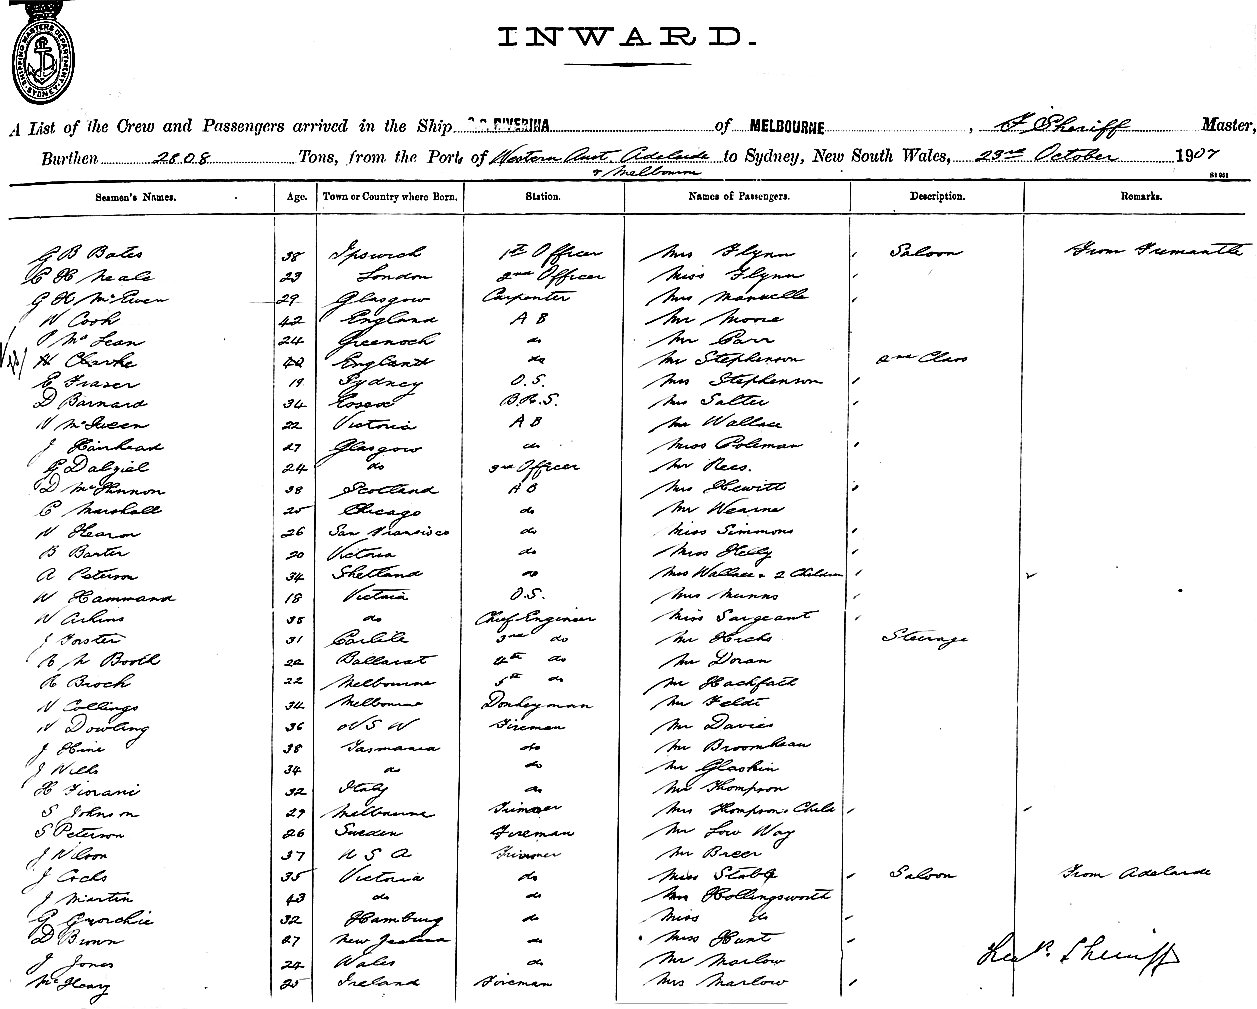 SHIPPING MASTERS DEPARTMENT SYDNEY
INWARD.
A List of the Crew and Passengers arrived in the Ship S.S. RIVERINA of MELBOURNE, F Sheriff Master,
Burthen 2808 Tons, from the Port of Western Aust. Adelaide to Sydney, New South Wales, 23rd October 1907
& Melbourne
Seamen's Names. Age. Town or Country where Born. Station. Names of Passengers. Description. Remarks.
G B Bates 38 Ipswich 1st Officer Mrs Flynn Saloon From Fremantle
C H Neale 23 London 2nd Officer Miss Flynn
G H McEwen 29 Glasgow Carpenter Mrs Manuelle
W Cook 42 England A B Mr Moore
McLean 24 Greenock do Mr Carr
H Clarke 42 England do Mr Stephenson 2nd Class
E Fraser 19 Sydney O.S. Mrs Stephenson
D Barnard 34 Essex B.R.S. Mrs Salter
N McQueen 22 Victoria A B Mr Wallace
J Fairhead 27 Glasgow do Miss Poleman
G Dalziel 24 do 3rd Officer Mr Rees.
D McKinnon 38 Scotland A B Mrs Hewitt
C Marshall 25 Chicago do Mr Wearne
W Hearn 26 San Francisco do Miss Simmons
B Barter 20 Victoria do Miss Kelly
A Peterson 34 Shetland do Mrs Wallace & 2 Children
W Hammand 18 Victoria O.S. Mrs Munns
W 35 do Chief Engineer Miss Sargeant
J Forster 31 Carlile 3rd do Mr Hicks Steerage
R N Booth 22 Ballarat 4th do Mr Doran
R Broch 22 Melbourne 5th do Mr
W Collings 34 Melbourne Donkeyman Mr Feldt
W Dowling 36 N S W Fireman Mr Davies
J Hine 38 Tasmania do Mr
J Wills 34 do do Mr Glaskin
H Fiorani 32 Italy do Mr Thompson
S Johnson 29 Melbourne Trimmer Mrs Thompson & Child
S Peterson 26 Sweden Fireman Mr Low Way
J Wilson 37 U S A Trimmer Mr Breer
J Cocks 35 Victoria do Miss Saloon From Adelaide
J Martin 43 do do Mrs Hollingsworth
G 32 Hamburg do Miss do
D Brown 27 New Zealand do Miss Hunt
J Jones 24 Wales do Mr Marlow
McHenry 25 Ireland Fireman Mrs Marlow
Sheriff